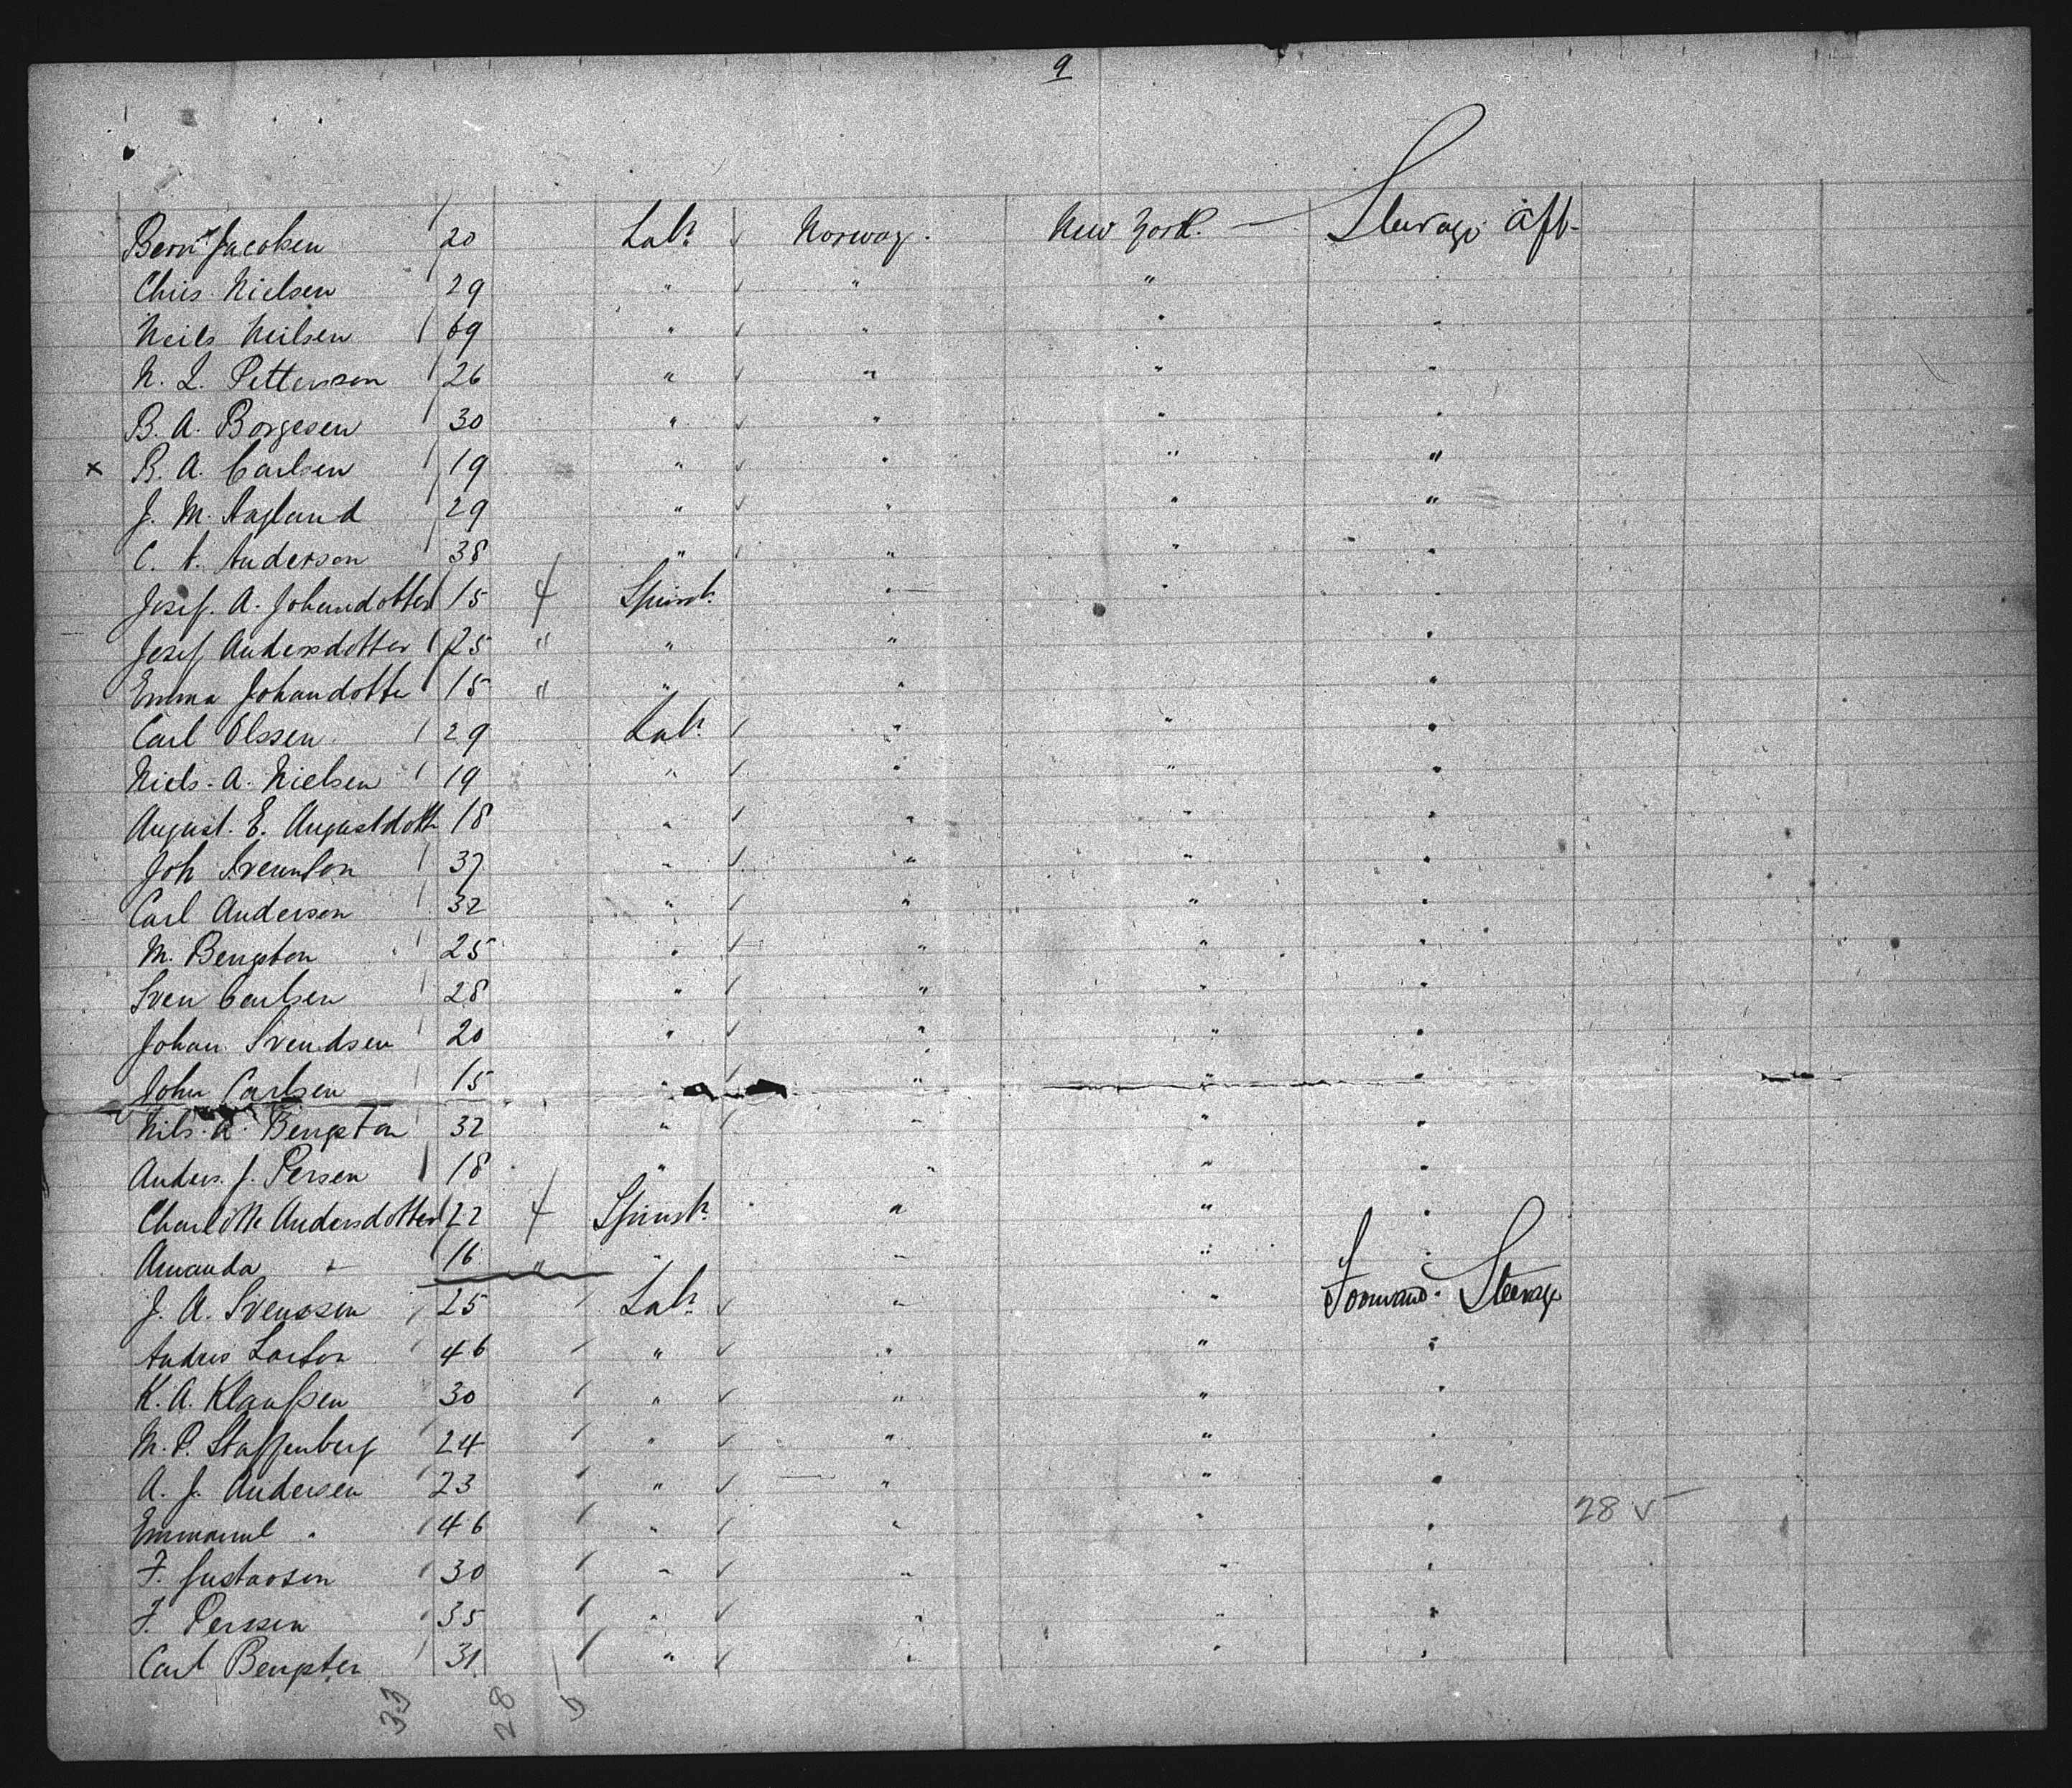 9
Bern Jacobsen 20 Labr. Norway. New York. — Steerage Aft-
Chris. Nielsen 29 " " "
Neils Neilsen 69 " " " "
N. L. Petterson 26 " " " "
B. A. Borgesen 30 " " " "
x B. A. Carlsen 19 " " " "
J. M. 29 " " " "
C. A. Anderson 38 " " " "
Josef. A. Johandotter 15 4 Spinstr. " " "
Josef Andersdotter 25 " " " "
Emma Johandotte 15 " " " "
Carl Olssen 29 Labr. " " "
Niels. A. Nielsen 19 " " " "
August. E. Augustdott 18 " " " "
Joh Svennson 37 " " " "
Carl Anderson 32 " " " "
M. Bengston 25 " " " "
Sven Carlsen 28 " " " "
Johan Svendsen 20 " " " "
John Carlsen 15 " " " "
Nils. A. Bengston 32 " " " "
Anders. J. Persen 18 " " " "
Charlotte Andersdotter 22 4 Spinstr. " " "
Amanda " 16 " " " " "
J. A. Svenssen 25 Labr. " " Forward. Steerage
Andres Larson 46 " " " "
K. A. Klaussen 30 " " " "
M. P. Staffenberg 24 " " " "
A. J. Andersen 23 " " " "
Emmanul " 46 " " " " 28 5
F. Gustavsen 30 " " " "
F. Perssen 35 " " " "
Carl Bengsten 31 " " " "
33 28 5